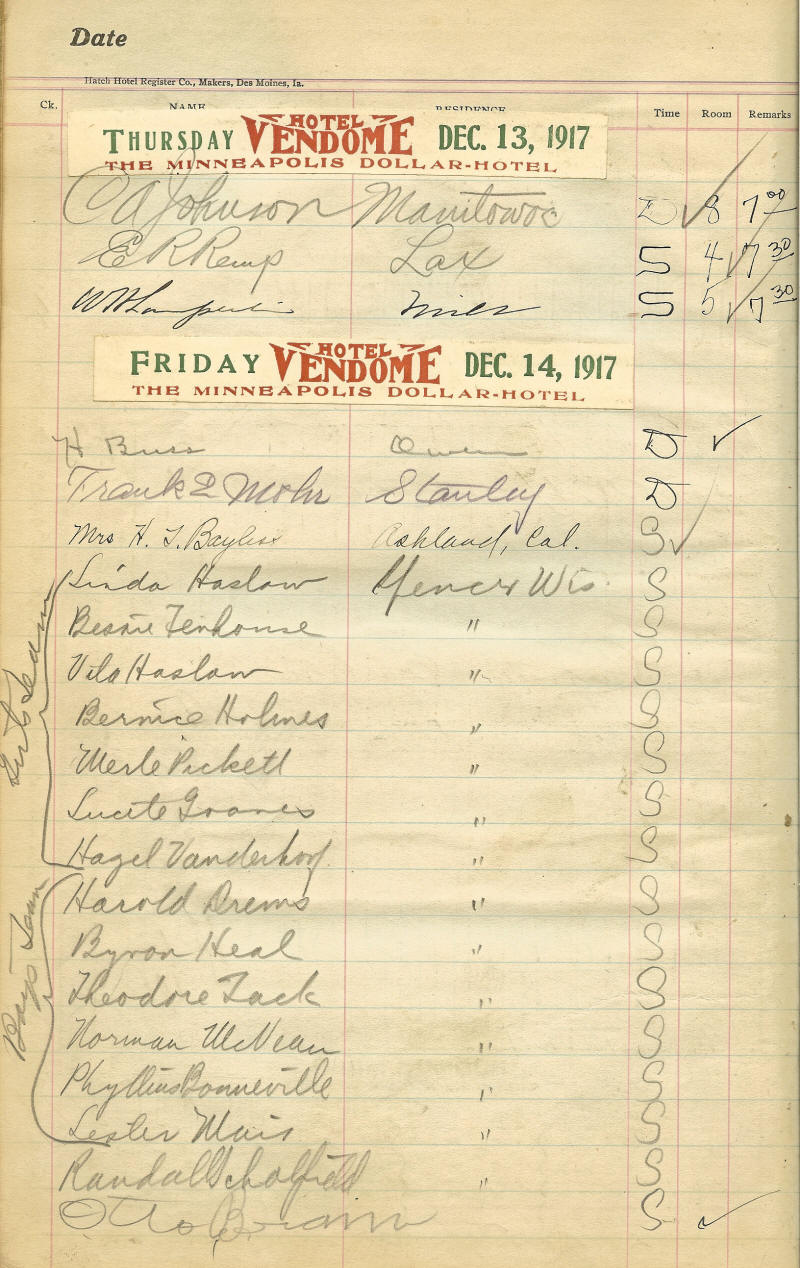 Date
Hatch Hotel Register Co., Makers, Des Moines, Ia.
Ck. NAME RESIDENCE Time Room Remarks
THURSDAY HOTEL VENDOME DEC. 13, 1917
THE MINNEAPOLIS DOLLAR-HOTEL
C A Johnson Manitowoc D ✓ 8 7 00
E R Kemp Lax S 4 ✓ 7 30
S 5 ✓ 7 30
FRIDAY HOTEL VENDOME DEC. 14, 1917
THE MINNEAPOLIS DOLLAR-HOTEL
H Buss Owen D ✓
Frank E Mohr Stanley D
Mrs H. J. Bayliss Ashland, Cal. S ✓
Girls Team
Linda Haslow Spencer Wis. S
Bessie Tenhouse " S
Vila Haslow " S
Bernice Holmes " S
Merle Pickett " S
Lucile Graves " S
Hazel Vanderhoof " S
Boys Team
Harold Drems " S
Byron Heal " S
Theodore Tack " S
Norman McVean " S
Phyllius Bonneville " S
Lester Mais " S
Randall Scholfield " S
Otto Braem S ✓